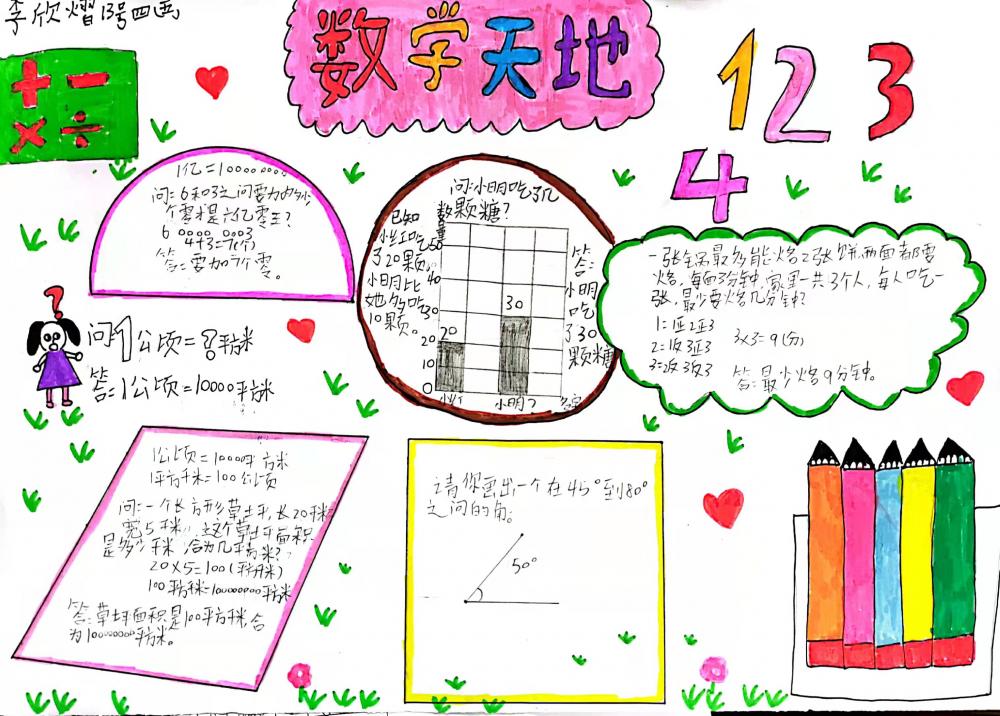 李欣熠13号四画
数学天地
+ -
× ÷
1 2 3
4
1亿=100000000
问:6和3之间要加多少
个零才是六亿零三?
6 0000 0003
4+3=7(个)
答:要加7个零。
问:小明吃了几
颗糖?
已知
小红吃
了20颗。
小明比
她多吃
10颗。
数量
50
40
30
20
10
0
20
30
小红
小明
名字
答:
小明
吃
了30
颗糖
一张锅最多能烙2张饼,两面都要
烙,每面3分钟,家里一共3个人,每人吃一
张,最少要烙几分钟?
1=1正2正3
2=1反3正3
3=2反3反3
3×3=9(分)
答:最少烙9分钟。
?
问:1公顷=?平方米
答:1公顷=10000平方米
1公顷=10000平方米
1平方千米=100公顷
问:一个长方形草坪,长20千米,
宽5千米,这个草坪面积
是多少千米 合为几平方米?
20×5=100(平方千米)
100平方千米=100000000平方米
答:草坪面积是100平方千米,合
为100000000平方米。
请你画出一个在45°到180°
之间的角。
50°